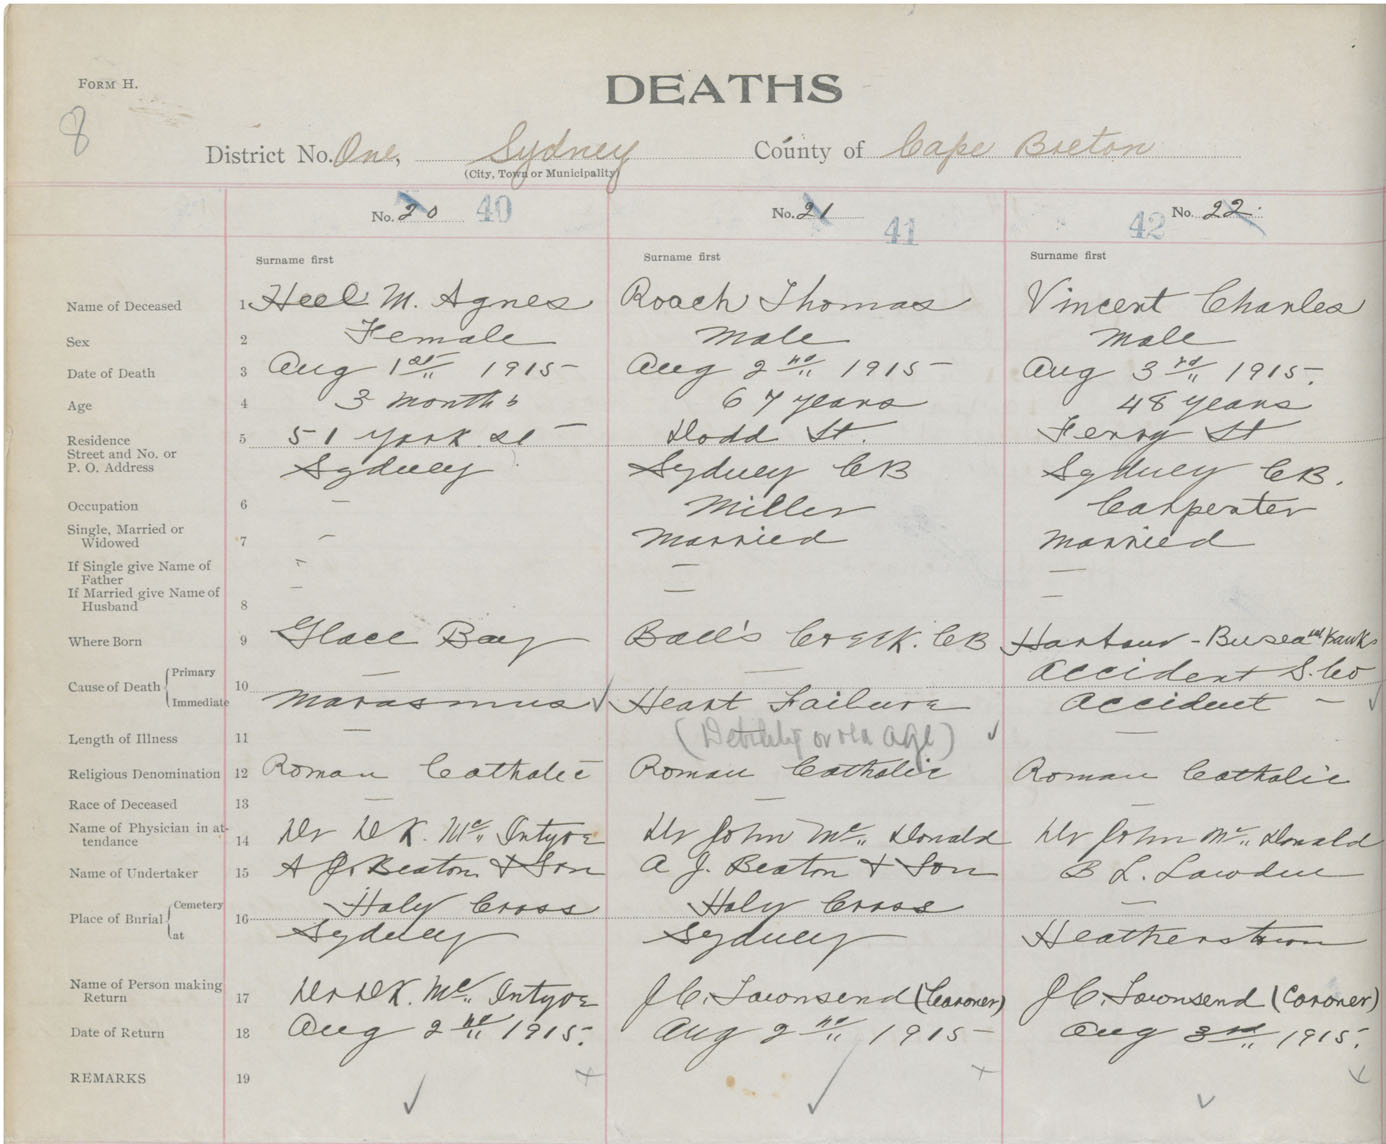 FORM H.
DEATHS
8
District No. One, Sydney County of Cape Breton
(City, Town or Municipality)
No. 20 40 No. 21 41 42 No. 22
Surname first Surname first Surname first
Name of Deceased 1 Heel M. Agnes Roach Thomas Vincent Charles
Sex 2 Female male male
Date of Death 3 Aug 1st 1915 Aug 2nd 1915 Aug 3rd 1915.
Age 4 3 months 67 years 48 years
Residence 5 51 York St Dodd St. Ferry St
Street and No. or
P. O. Address Sydney Sydney CB Sydney CB.
Occupation 6 – Miller Carpenter
Single, Married or
Widowed 7 – married married
If Single give Name of
Father – – –
If Married give Name of
Husband 8 – – –
Where Born 9 Glace Bay Ball's Creek. CB Harbour -
Cause of Death Primary 10 – – Accident S. Co
Immediate marasmus Heart Failure Accident –
Length of Illness 11 – (Debility or old age) –
Religious Denomination 12 Roman Catholic Roman Catholic Roman Catholic
Race of Deceased 13 – – –
Name of Physician in at-
tendance 14 Dr D K. Mc Intyre Dr John Mc Donald Dr John Mc Donald
Name of Undertaker 15 A J. Beaton & Son A J. Beaton & Son B L. Lowden
Place of Burial Cemetery 16 Holy Cross Holy Cross –
at Sydney Sydney Heatherstown
Name of Person making
Return 17 Dr D K. Mc Intyre J C. Townsend (Coroner) J C. Townsend (Coroner)
Date of Return 18 Aug 2nd 1915. Aug 2nd 1915 Aug 3rd 1915.
REMARKS 19